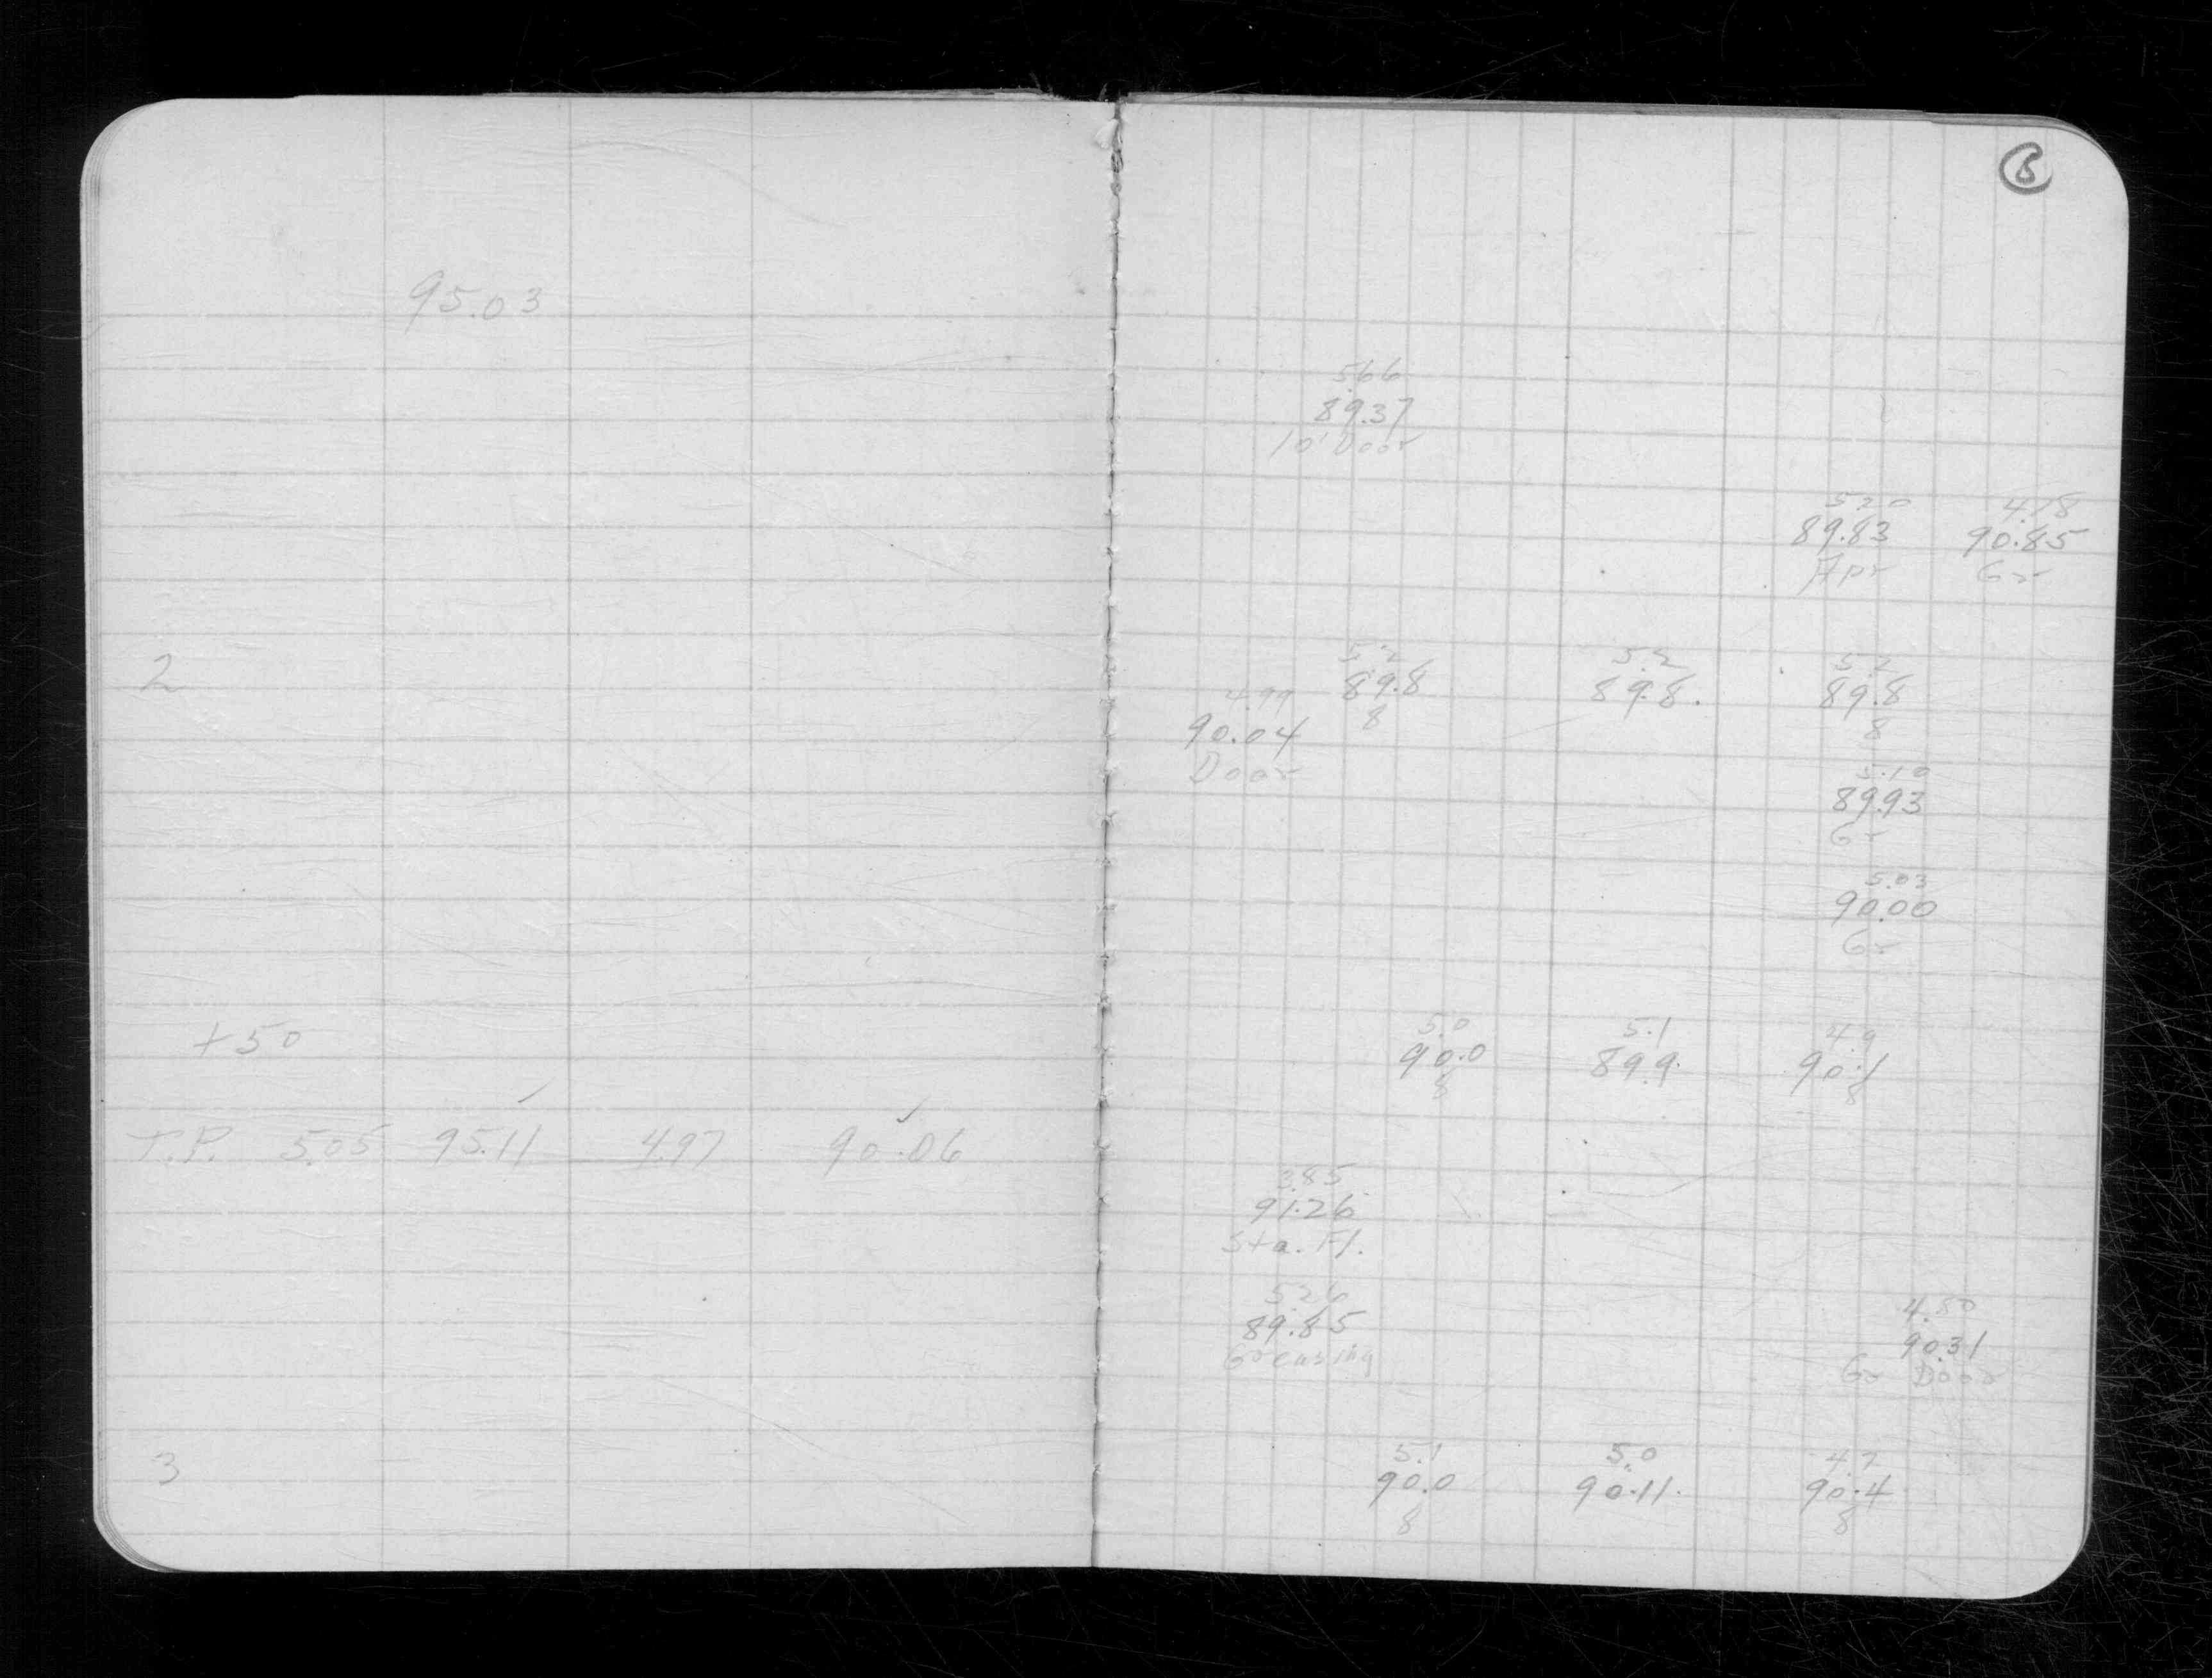 6
95.03
5.66
89.37
10' Door
5.20 4.18
89.83 90.85
Apr Gr
2
5.2 5.2 5.2
89.8 89.8. 89.8
8 8
4.99
90.04
Door
5.10
89.93
Gr
5.03
90.00
Gr
+50
5.0 5.1 4.9
90.0 89.9. 90.1
8 8
T.P. 5.05 95.11 4.97 90.06
3.85
91.26
Sta. Fl.
5.26
89.85
Gr casing
4.80
90.31
Gr Door
3
5.1 5.0 4.7
90.0 90.11. 90.4
8 8